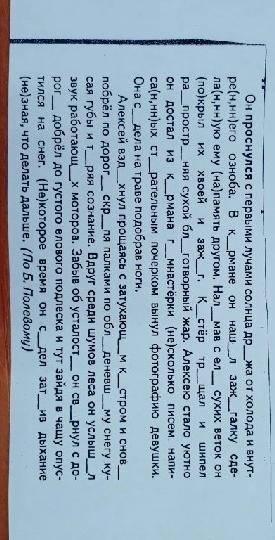 Он проснулся с первыми лучами солнца др__жа от холода и внут-
ре(н,нн)его озноба. В к__рмане он наш__л заж__галку сде-
ла(н,нн)ую ему (на)память другом. Нал__мав с ел__ сухих веток он
(по)крыл их хвоей и заж__г. К__стёр тр__щал и шипел
ра__простр__няя сухой бл__готворный жар. Алексею стало уютно
он достал из к__рмана г__мнастёрки (не)сколько писем напи-
са(н,нн)ых ст__рательным почерком вынул фотографию девушки.
Она с__дела на траве подобрав ноги.
Алексей взд__хнул прощаясь с затухающ__м к__стром и снов__
побрёл по дорог__ скр__пя палками по обл__деневш__му снегу ку-
сая губы и т__ряя сознание. Вдруг среди шумов леса он услыш__л
звук работающ__х моторов. Забыв об усталост__ он св__рнул с до-
рог__ добрёл до густого елового подлеска и тут зайдя в чащу опус-
тился на снег. (Не)которое время он с__дел зат__ив дыхание
(не)зная, что делать дальше. (По Б. Полевому)